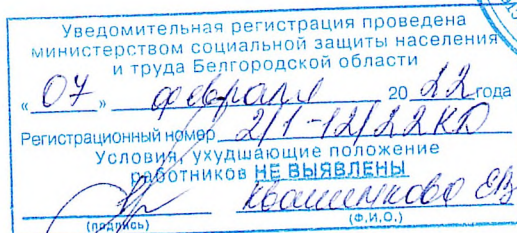 Уведомительная регистрация проведена
министерством социальной защиты населения
и труда Белгородской области
« 07 » февраля 20 22 года
Регистрационный номер 2/1-12/22КД
Условия, ухудшающие положение
работников НЕ ВЫЯВЛЕНЫ
(подпись) (Ф.И.О.)